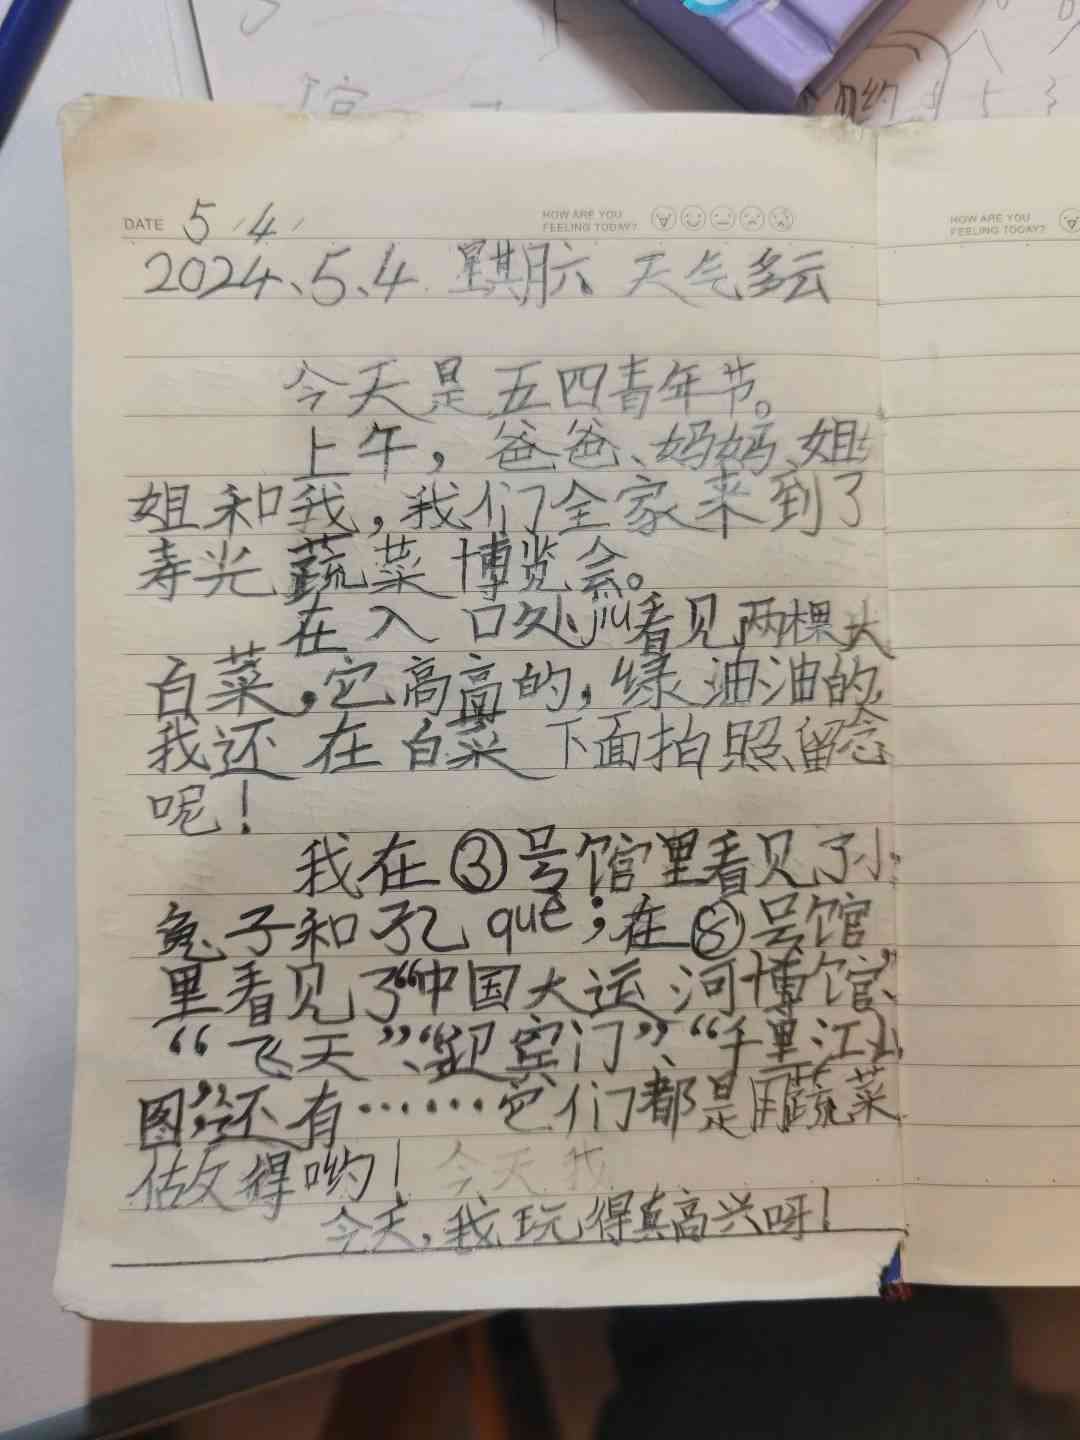 DATE 5/4/
HOW ARE YOU
FEELING TODAY?
2024、5、4. 星期六 天气多云
今天是五四青年节。
上午，爸爸、妈妈、姐
姐和我，我们全家来到了
寿光蔬菜博览会。
在入口处jiu看见两棵大
白菜，它高高的，绿油油的，
我还在白菜下面拍照留念
呢！
我在③号馆里看见了小
兔子和孔què；在⑧号馆
里看见了“中国大运河博馆”、
“飞天”、“迎宾门”、“千里江山
图”，还有……它们都是用蔬菜
做得哟！今天我
今天，我玩得真高兴呀！
HOW ARE YOU
FEELING TODAY?